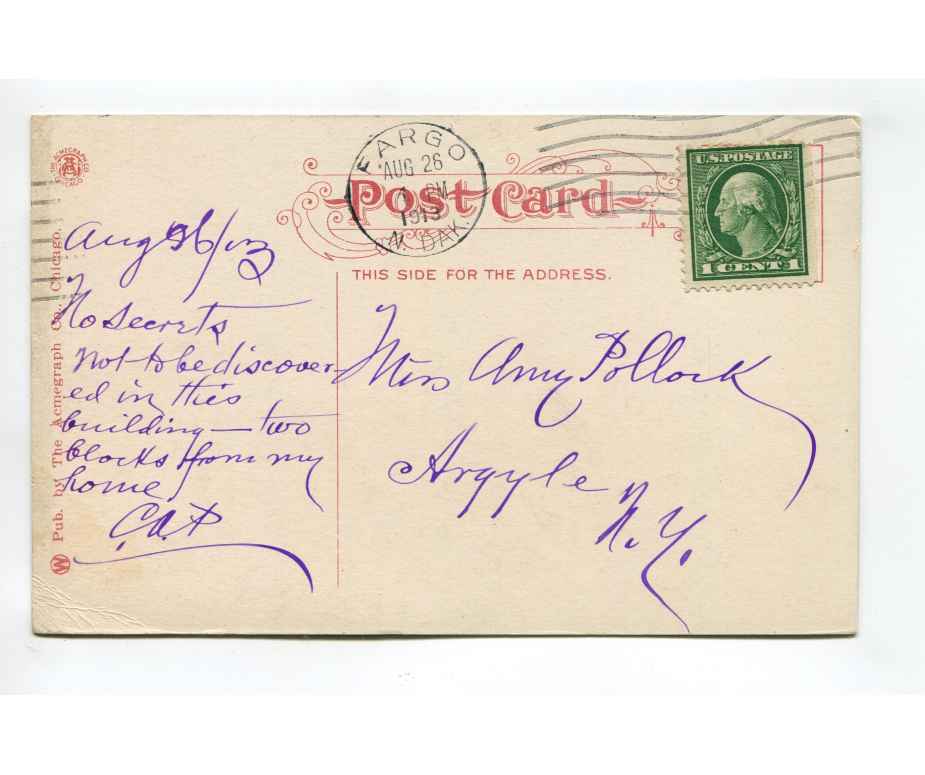 FARGO
AUG 26
PM
1913
N. DAK.
U.S. POSTAGE
1 CENT 1
Post Card
THIS SIDE FOR THE ADDRESS.
Pub. by The Acmegraph Co., Chicago.
Aug 26/13
No secrets
not to be discover-
ed in this
building — two
blocks from my
home
C.A.P
Miss Amy Pollock
Argyle
N.Y.